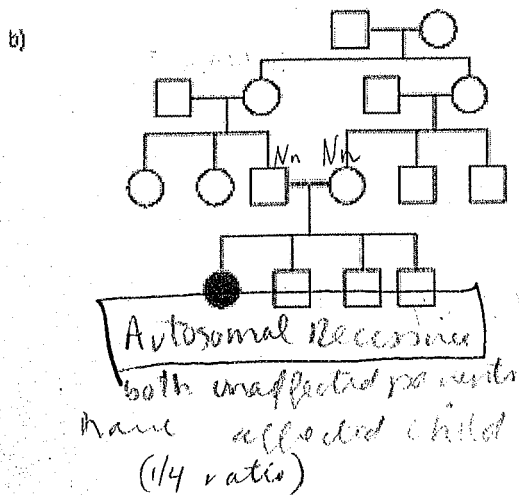 b)
Nn Nn
Autosomal Recessive
both unaffected parents
have affected child
(1/4 ratio)